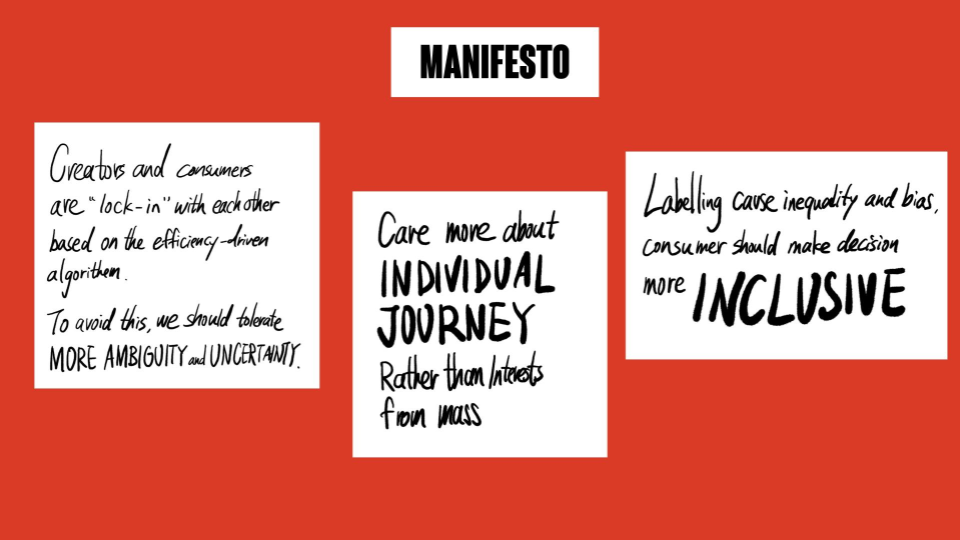 MANIFESTO
Creators and consumers
are "lock-in" with each other
based on the efficiency-driven
algorithem.
To avoid this, we should tolerate
MORE AMBIGUITY and UNCERTAINTY.
Care more about
INDIVIDUAL
JOURNEY
Rather than Interests
from mass
Labelling cause inequality and bias,
consumer should make decision
more INCLUSIVE